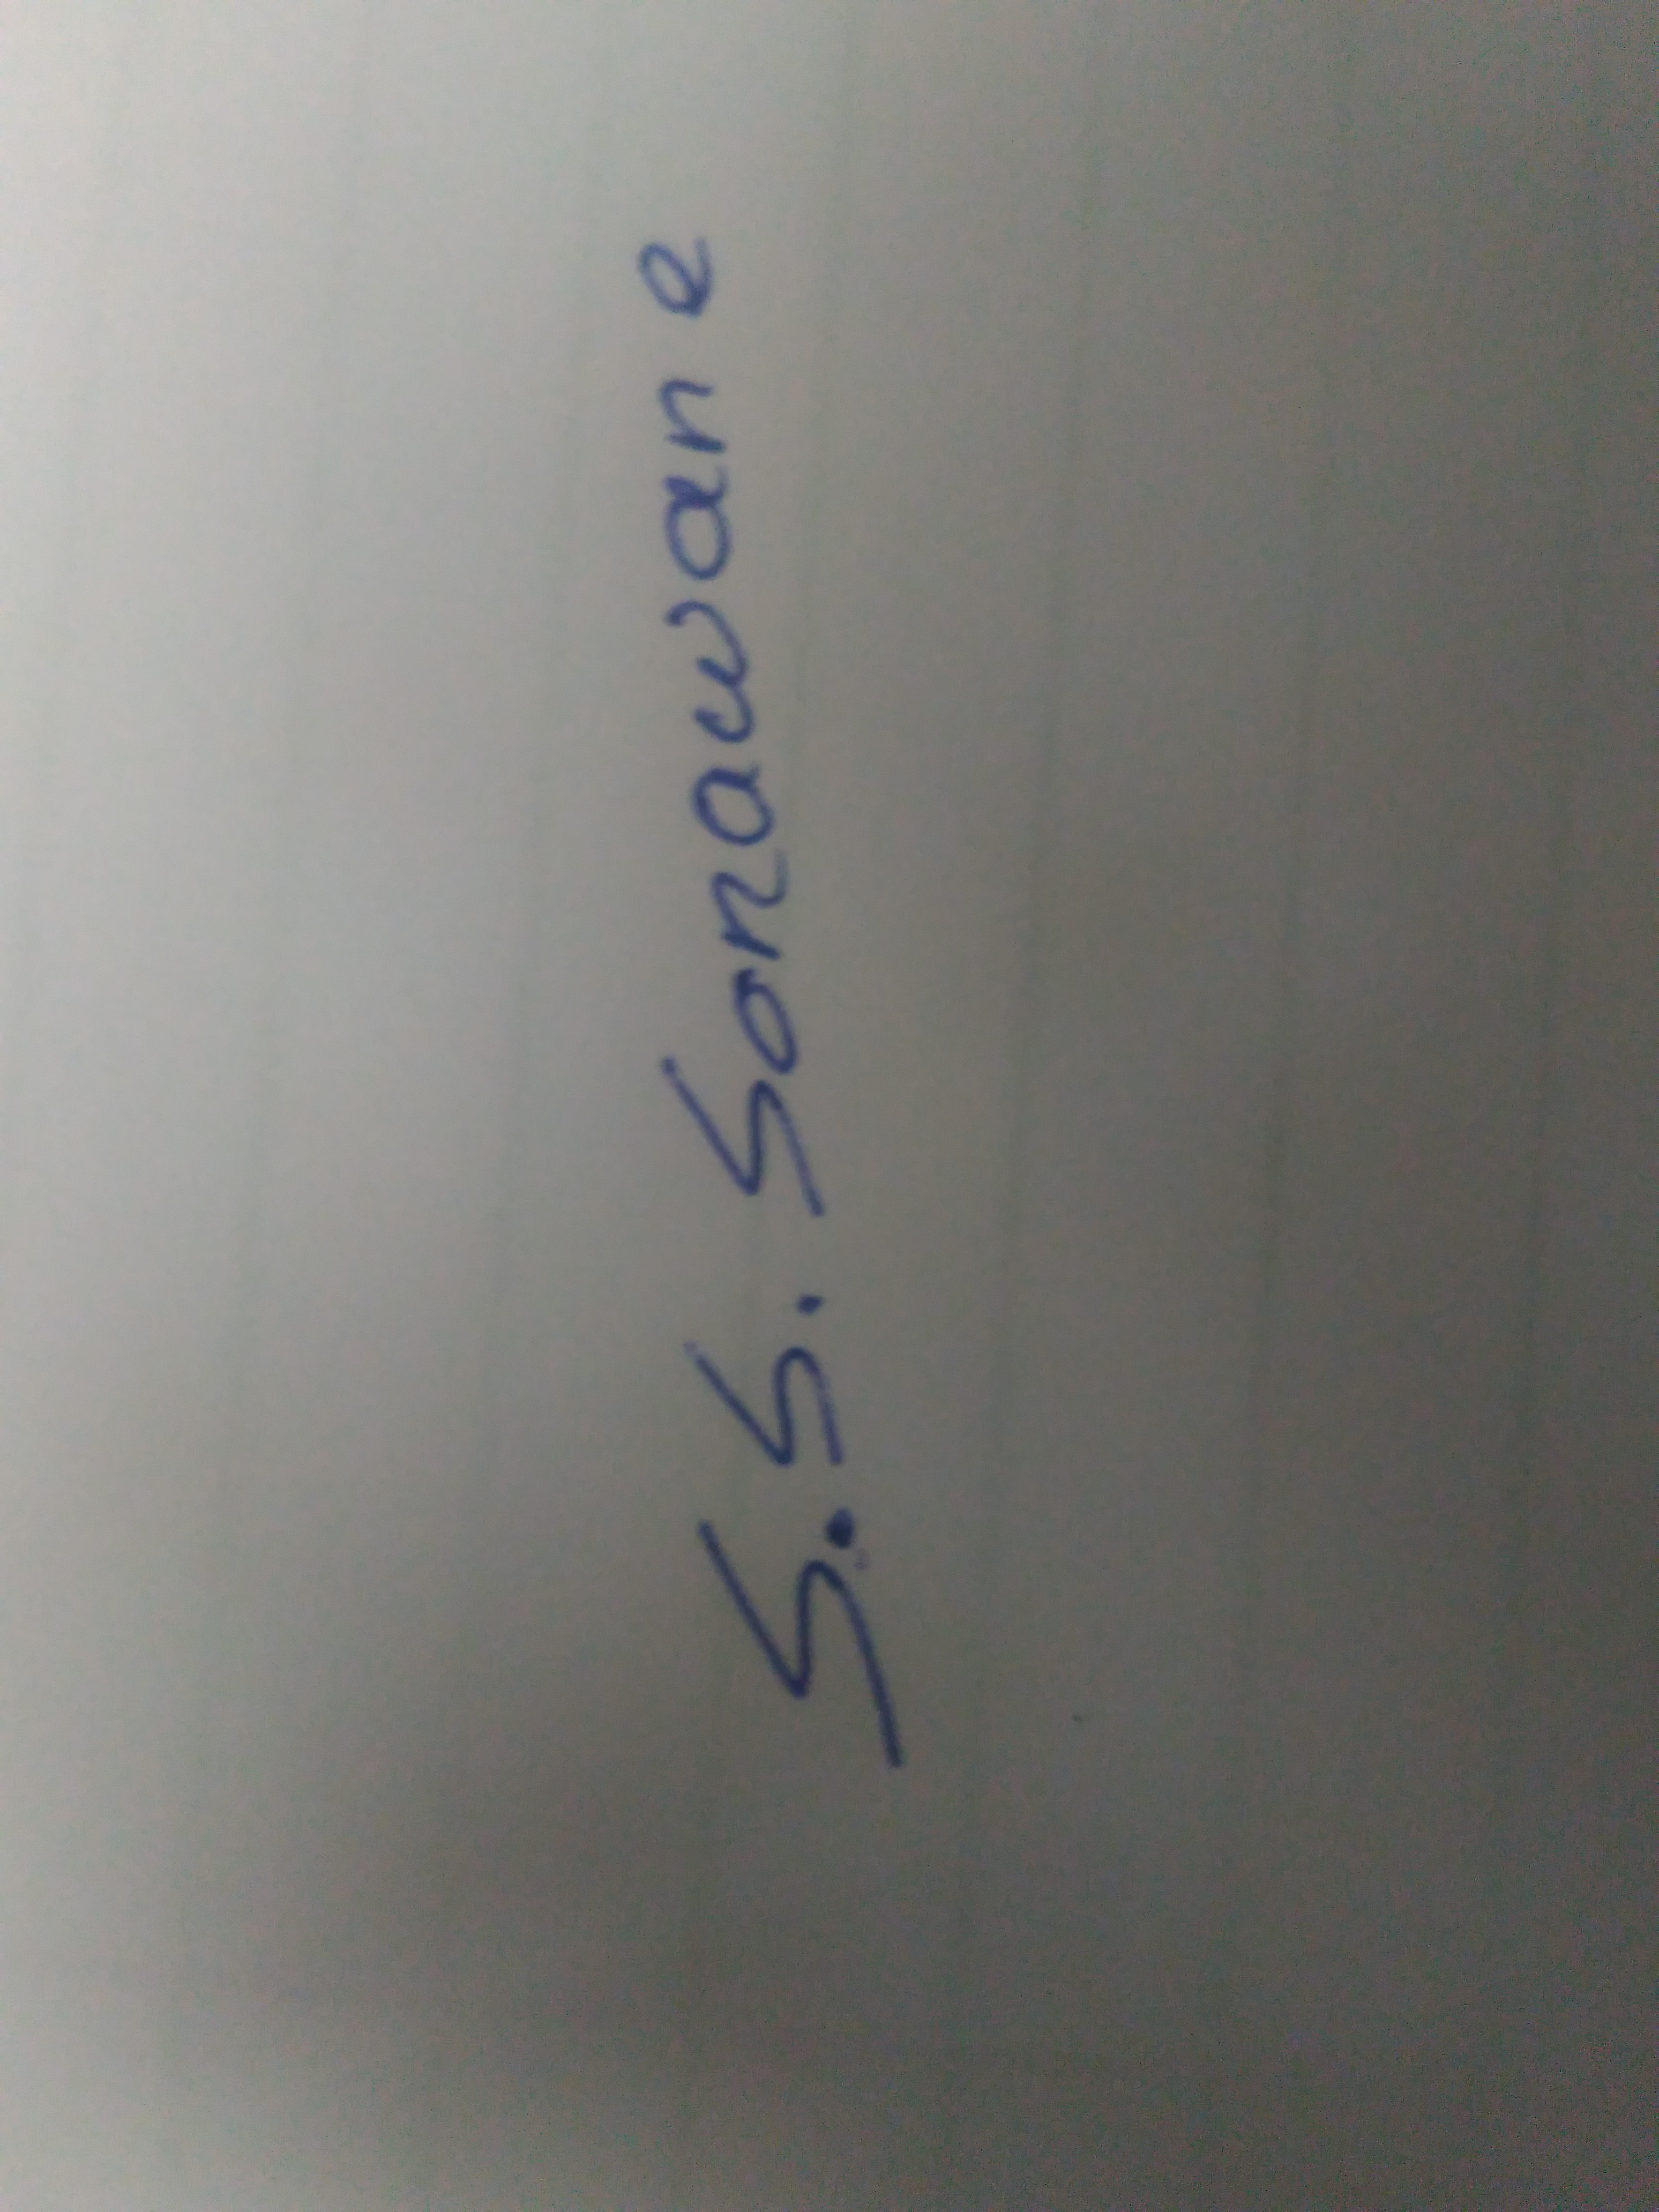 S.S. Sonawane